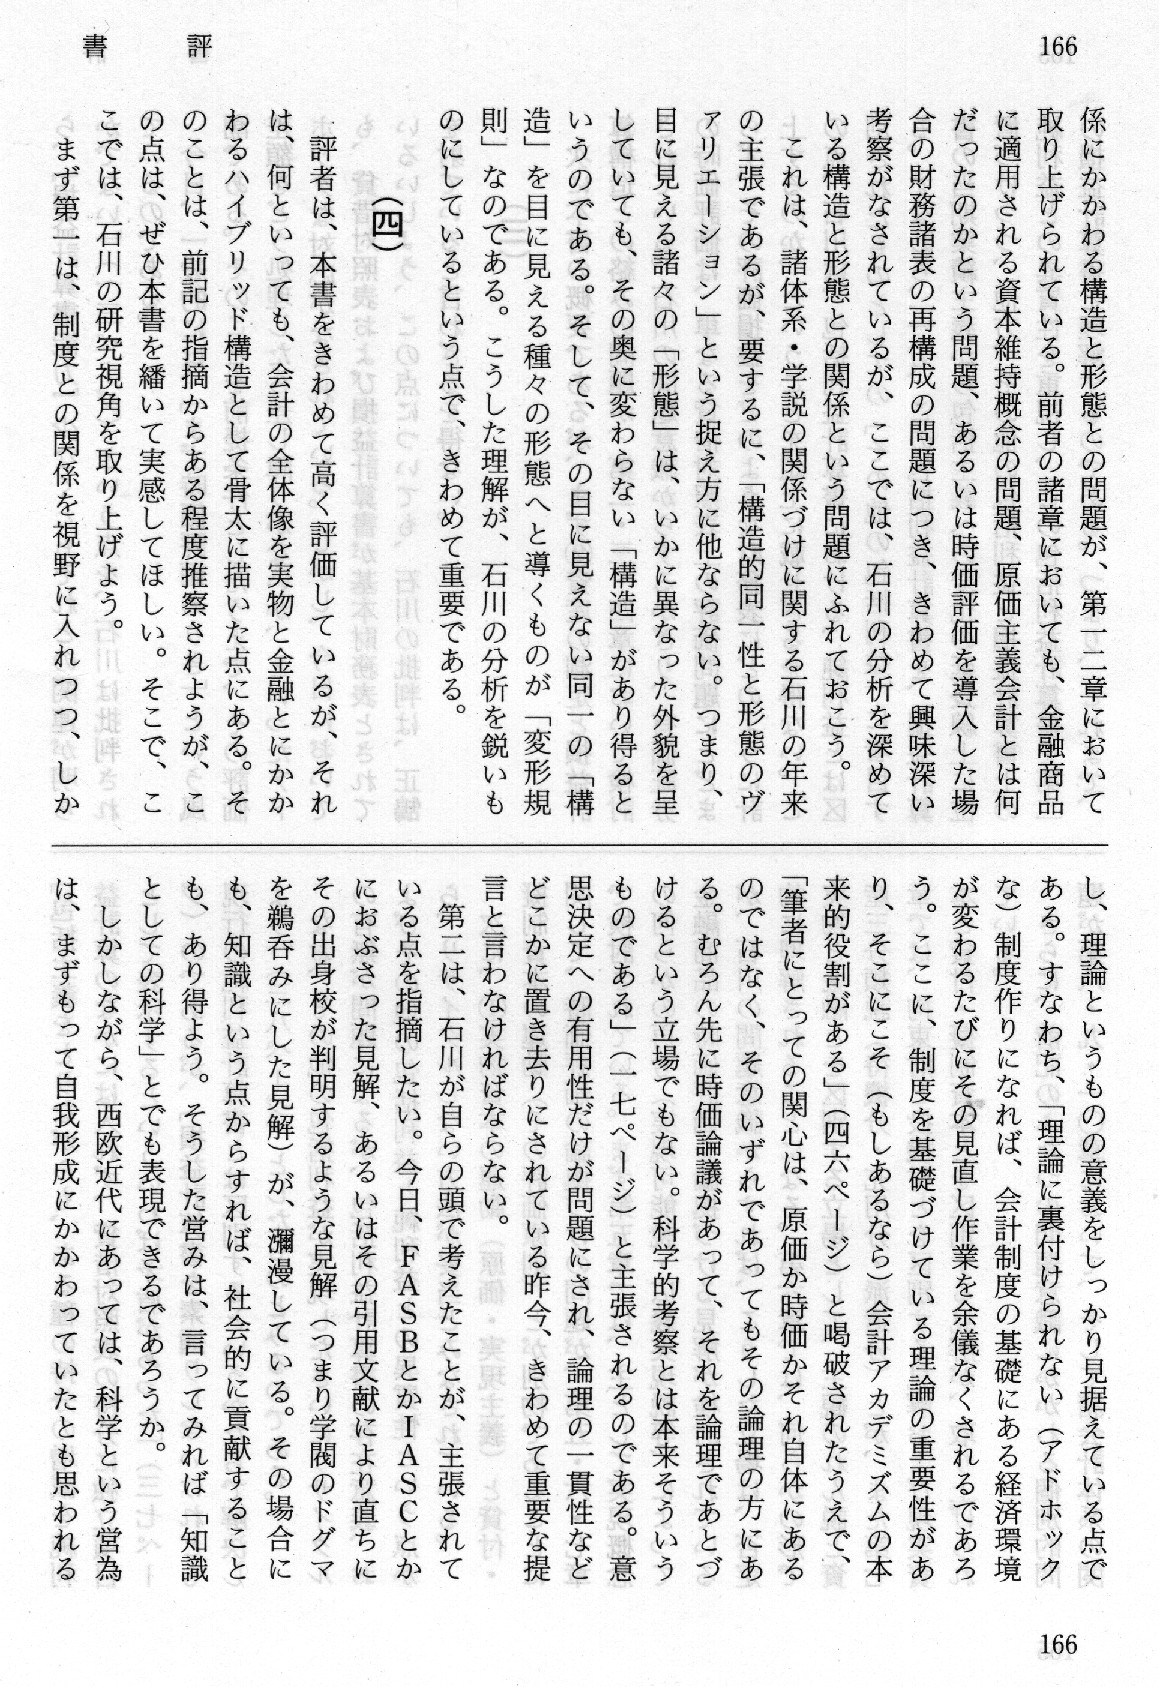 書評
166
係にかかわる構造と形態との問題が、第一二章において
取り上げられている。前者の諸章においても、金融商品
に適用される資本維持概念の問題、原価主義会計とは何
だったのかという問題、あるいは時価評価を導入した場
合の財務諸表の再構成の問題につき、きわめて興味深い
考察がなされているが、ここでは、石川の分析を深めて
いる構造と形態との関係という問題にふれておこう。
これは、諸体系・学説の関係づけに関する石川の年来
の主張であるが、要するに、「構造的同一性と形態のヴ
ァリエーション」という捉え方に他ならない。つまり、
目に見える諸々の「形態」は、いかに異なった外貌を呈
していても、その奥に変わらない「構造」があり得ると
いうのである。そして、その目に見えない同一の「構
造」を目に見える種々の形態へと導くものが「変形規
則」なのである。こうした理解が、石川の分析を鋭いも
のにしているという点で、きわめて重要である。
（四）
評者は、本書をきわめて高く評価しているが、それ
は、何といっても、会計の全体像を実物と金融とにかか
わるハイブリッド構造として骨太に描いた点にある。そ
のことは、前記の指摘からある程度推察されようが、こ
の点は、ぜひ本書を繙いて実感してほしい。そこで、こ
こでは、石川の研究視角を取り上げよう。
まず第一は、制度との関係を視野に入れつつ、しか
し、理論というものの意義をしっかり見据えている点で
ある。すなわち、「理論に裏付けられない（アドホック
な）制度作りになれば、会計制度の基礎にある経済環境
が変わるたびにその見直し作業を余儀なくされるであろ
う。ここに、制度を基礎づけている理論の重要性があ
り、そこにこそ（もしあるなら）会計アカデミズムの本
来的役割がある」（四六ページ）と喝破されたうえで、
「筆者にとっての関心は、原価か時価かそれ自体にある
のではなく、そのいずれであってもその論理の方にあ
る。むろん先に時価論議があって、それを論理であとづ
けるという立場でもない。科学的考察とは本来そういう
ものである」（一七ページ）と主張されるのである。意
思決定への有用性だけが問題にされ、論理の一貫性など
どこかに置き去りにされている昨今、きわめて重要な提
言と言わなければならない。
第二は、石川が自らの頭で考えたことが、主張されて
いる点を指摘したい。今日、ＦＡＳＢとかＩＡＳＣとか
におぶさった見解、あるいはその引用文献により直ちに
その出身校が判明するような見解（つまり学閥のドグマ
を鵜呑みにした見解）が、瀰漫している。その場合に
も、知識という点からすれば、社会的に貢献すること
も、あり得よう。そうした営みは、言ってみれば「知識
としての科学」とでも表現できるであろうか。
しかしながら、西欧近代にあっては、科学という営為
は、まずもって自我形成にかかわっていたとも思われる
166